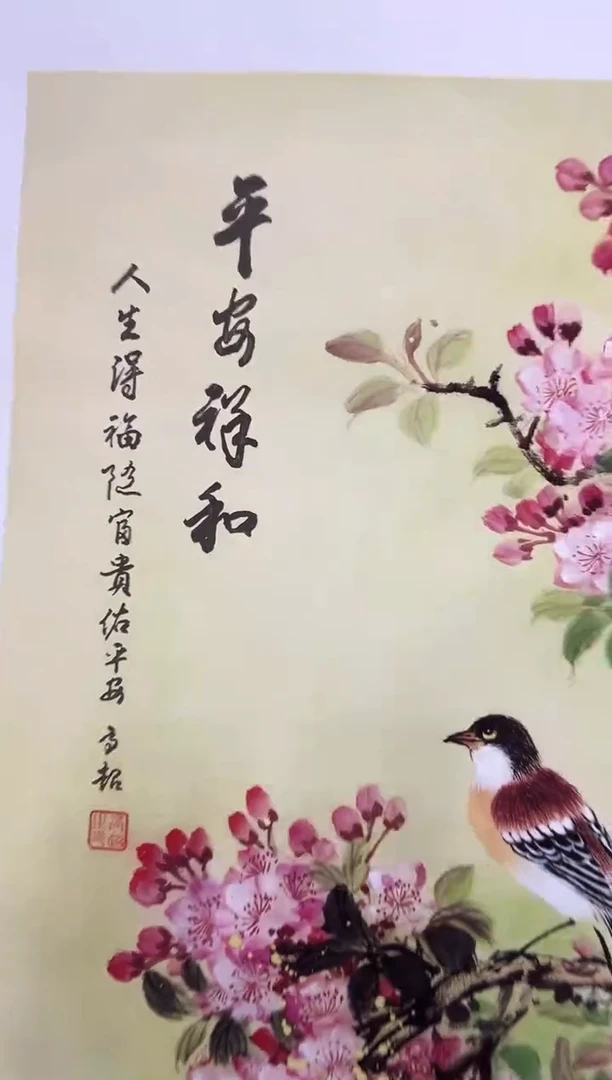 平安祥和
人生得福随富貴佑平安